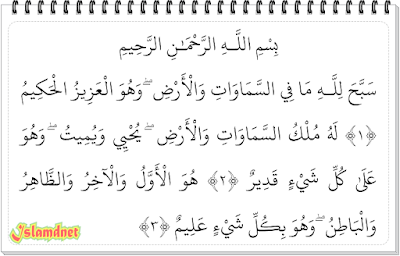 بِسْمِ اللَّـهِ الرَّحْمَـٰنِ الرَّحِيمِ
سَبَّحَ لِلَّـهِ مَا فِي السَّمَاوَاتِ وَالْأَرْضِ ۖ وَهُوَ الْعَزِيزُ الْحَكِيمُ
﴿١﴾ لَهُ مُلْكُ السَّمَاوَاتِ وَالْأَرْضِ ۖ يُحْيِي وَيُمِيتُ ۖ وَهُوَ
عَلَىٰ كُلِّ شَيْءٍ قَدِيرٌ ﴿٢﴾ هُوَ الْأَوَّلُ وَالْآخِرُ وَالظَّاهِرُ
وَالْبَاطِنُ ۖ وَهُوَ بِكُلِّ شَيْءٍ عَلِيمٌ ﴿٣﴾
Islamdnet